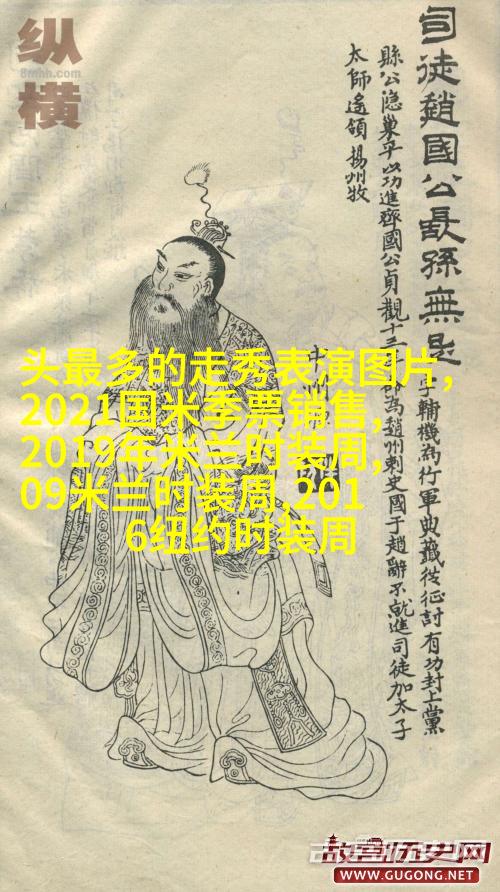 纵
8mhh.com
横
司徒趙國公長孫無忌
字輔機為行軍典籤從征討有功封上黨
縣公隐巢平以功進齊國公貞觀十三
為趙州刺史國于趙辭不就進司徒加太子
太師遙領揚州牧
头最多的走秀表演图片,
2021国米季票销售,
2019年米兰时装周,
09米兰时装周,201
6纽约时装周
故宫历史网
WWW.GUGONG.NET